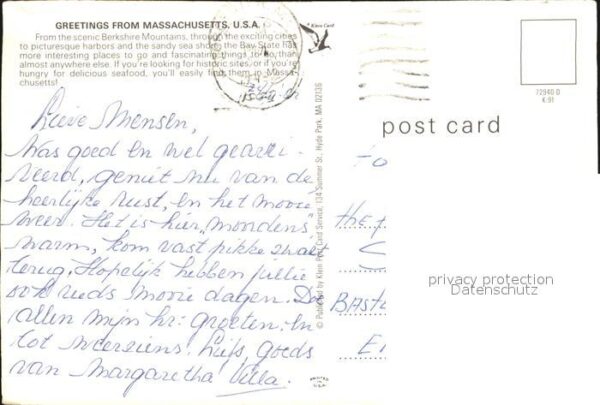 GREETINGS FROM MASSACHUSETTS, U.S.A.
From the scenic Berkshire Mountains, through the exciting cities
to picturesque harbors and the sandy sea shore, the Bay State has
more interesting places to go and fascinating things to do than
almost anywhere else. If you're looking for historic sites, or if you're
hungry for delicious seafood, you'll easily find them in Massa-
chusetts!
© Klein Card
72940 D
K-91
post card
© Published by Klein Post Card Service, 134 Summer St., Hyde Park, MA 02136
PRINTED IN U.S.A.
Lieve Mensen,
Was goed en wel gearri-
veerd, geniet nu van de
heerlijke rust, en het mooie
weer. Het is hier "moordens"
warm, kom vast pikke zwart
terug. Hopelijk hebben jullie
ook reeds mooie dagen. Das
allen mijn hr: groeten. En
tot weerziens. Liefs, goeds
van Margaretha Villa.
privacy protection
Datenschutz